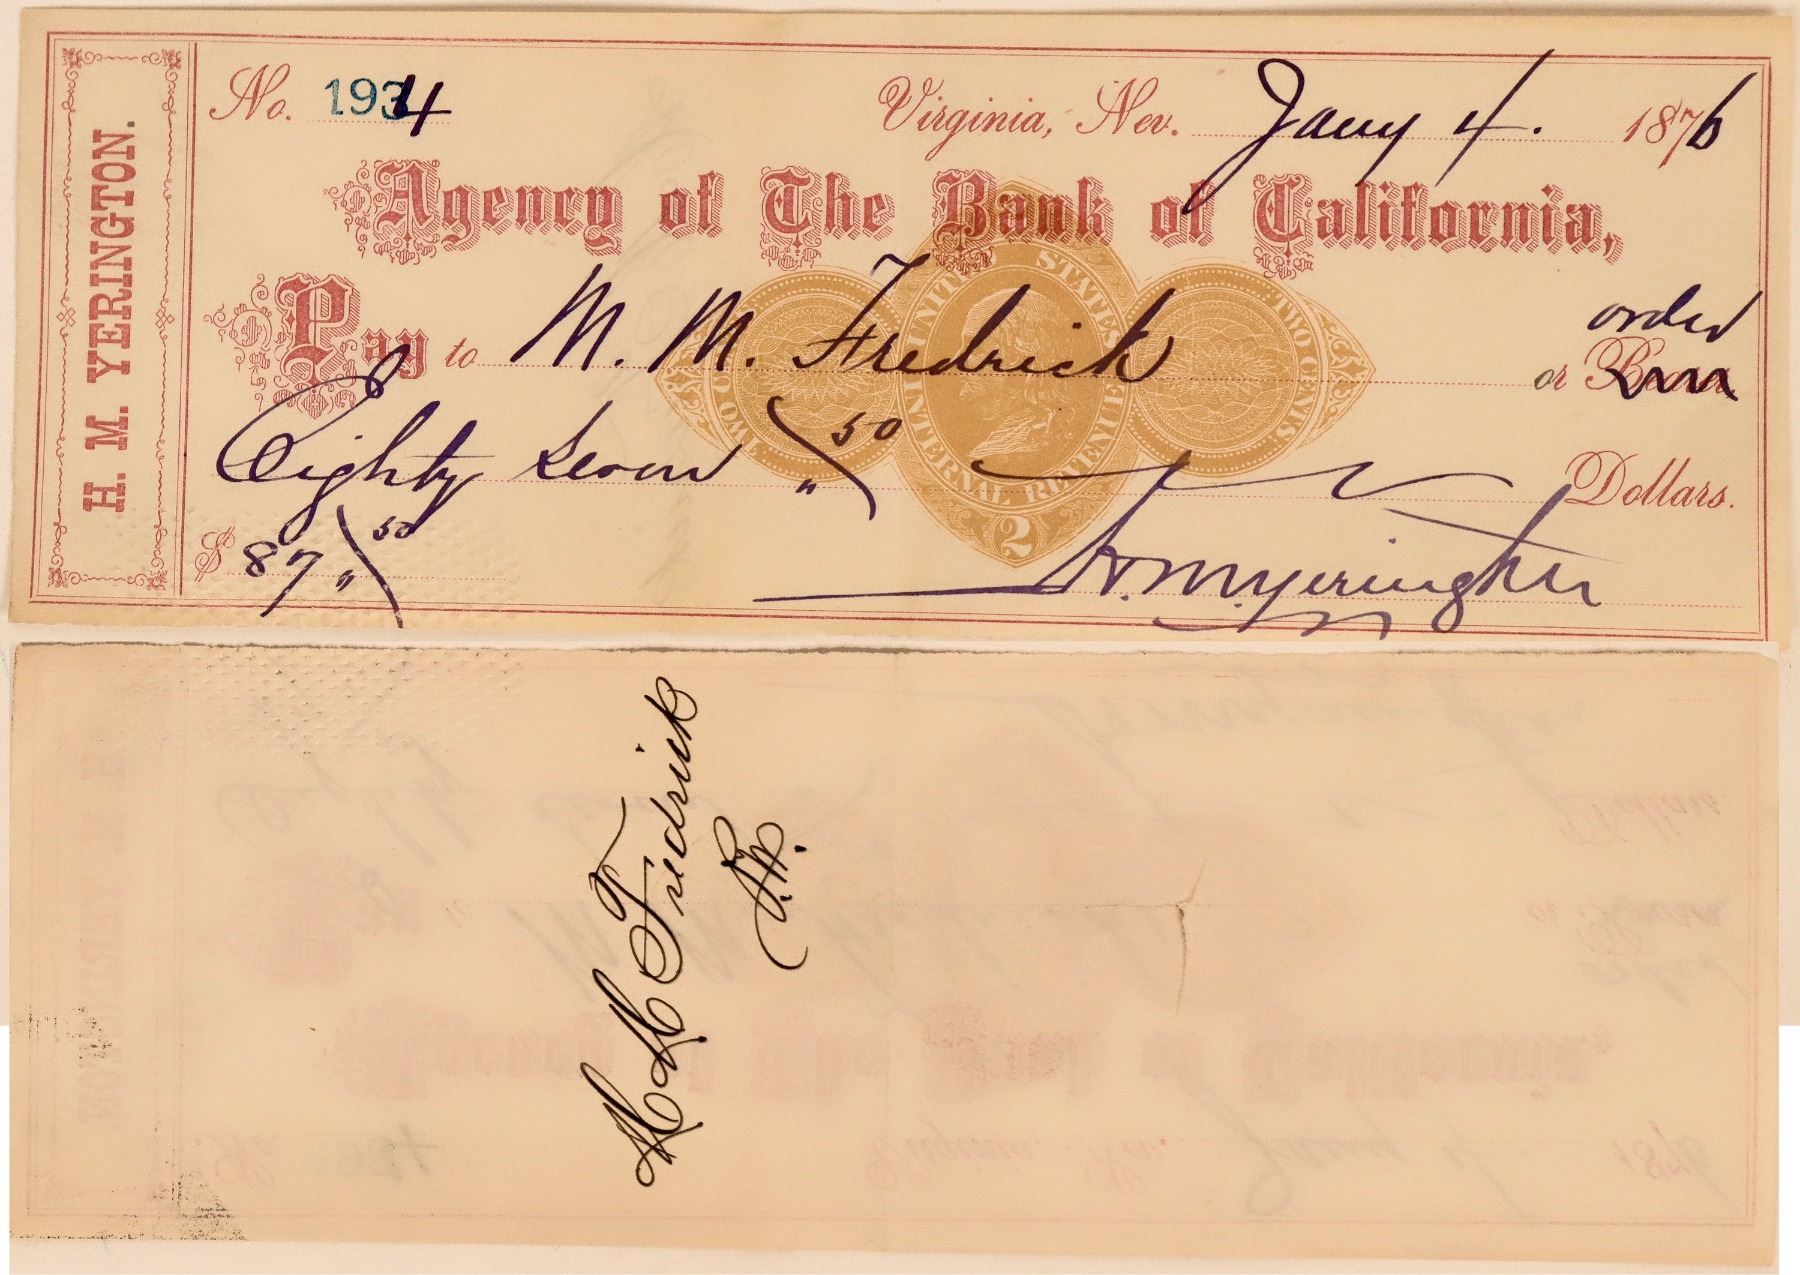 H. M. YERINGTON.
No. 1934 Virginia, Nev. Jany 4. 1876
Agency of The Bank of California,
order
Pay to M. M. Fredrick or Bearer
Eighty Seven " 50 Dollars.
$ 87 " 50
H. M. Yerington
UNITED STATES
INTERNAL REVENUE
TWO CENTS
2
M M Fredrick